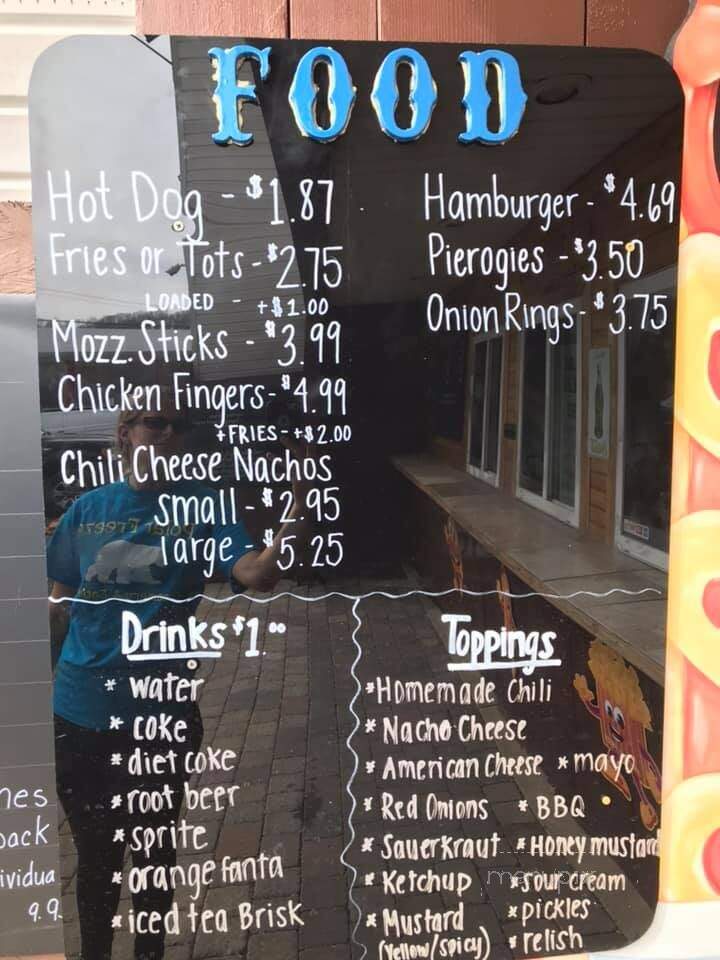 FOOD
Hot Dog - $1.87
Fries or Tots - $2.75
LOADED - +$1.00
Mozz. Sticks - $3.99
Chicken Fingers - $4.99
+FRIES - +$2.00
Chili Cheese Nachos
small - $2.95
large - $5.25
Hamburger - $4.69
Pierogies - $3.50
Onion Rings - $3.75
Drinks $1.00
* water
* coke
* diet coke
* root beer
* sprite
* orange fanta
* iced tea Brisk
Toppings
*Homemade Chili
* Nacho Cheese
* American Cheese * mayo
* Red Onions * BBQ
* Sauerkraut * Honey mustard
* Ketchup * sour cream
* Mustard * pickles
(Yellow/Spicy) * relish